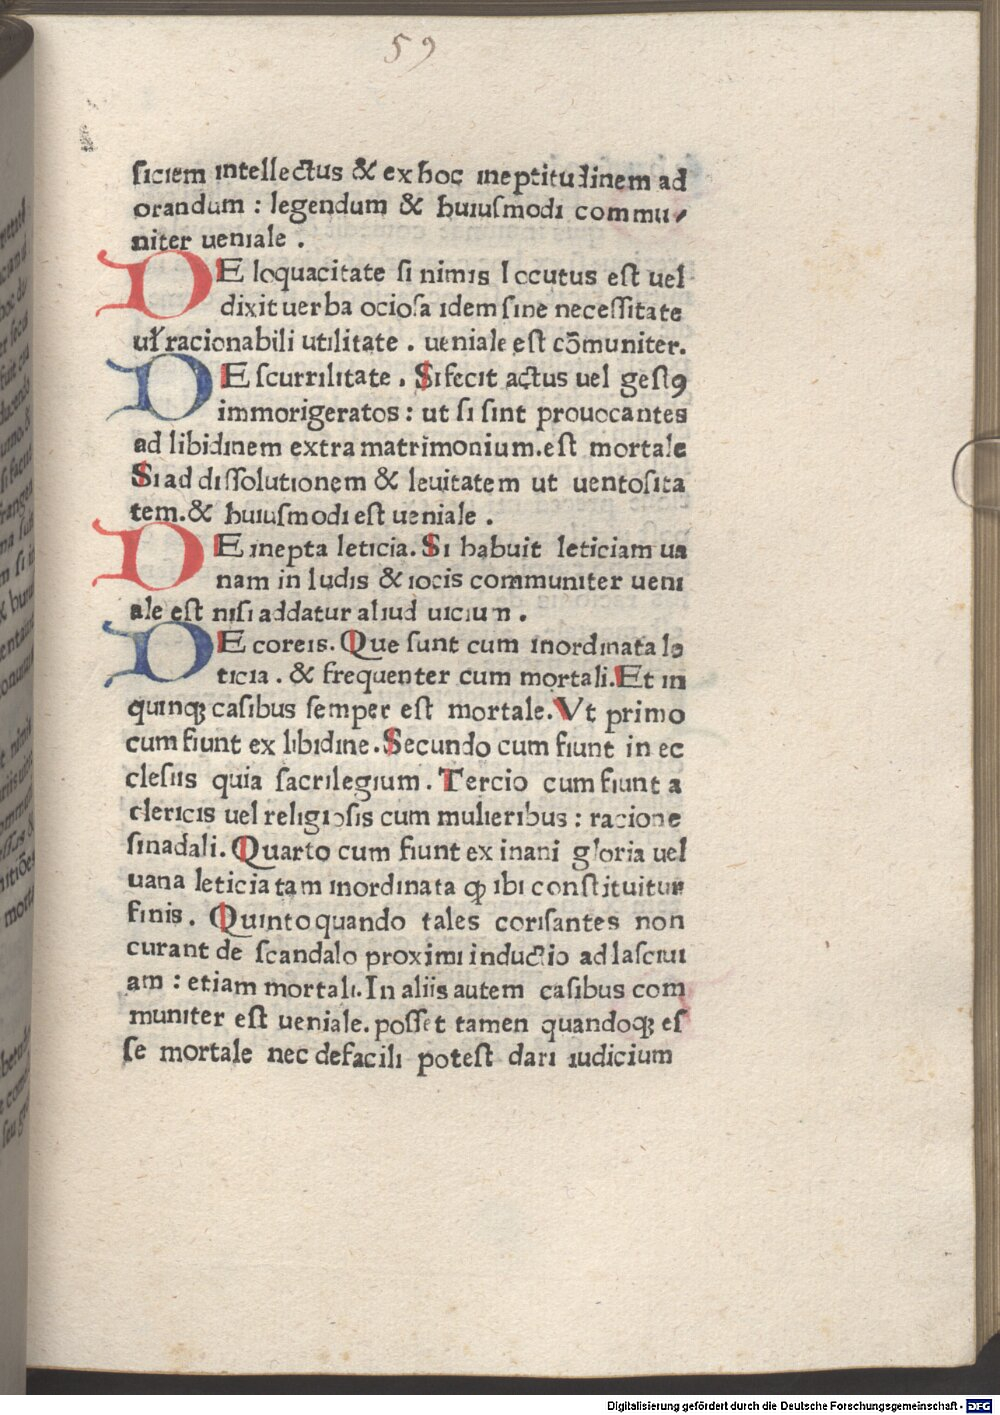 59
ſiciem intellectus & ex hoc ineptitudinem ad
orandum : legendum & huiuſmodi commu⸗
niter ueniale .
DE loquacitate ſi nimis locutus eſt uel
dixit uerba ocioſa idem ſine neceſſitate
uł racionabili utilitate . ueniale eſt cōmuniter.
DE ſcurrilitate . Si fecit actus uel geſtꝯ
immorigeratos : ut ſi ſint prouocantes
ad libidinem extra matrimonium.eſt mortale
Si ad diſſolutionem & leuitatem ut uentoſita
tem.& huiuſmodi eſt ueniale .
DE inepta leticia. Si habuit leticiam ua
nam in ludis & iocis communiter ueni
ale eſt niſi addatur aliud uicium .
DE coreis. Que ſunt cum inordinata le
ticia . & frequenter cum mortali. Et in
quinqꝫ caſibus ſemper eſt mortale. Vt primo
cum fiunt ex libidine. Secundo cum fiunt in ec
cleſiis quia ſacrilegium . Tercio cum fiunt a
clericis uel religioſis cum mulieribus : racione
ſinadali. Quarto cum fiunt ex inani gloria uel
uana leticia tam inordinata ꝙ ibi conſtituitur
finis . Quinto quando tales coriſantes non
curant de ſcandalo proximi inductio ad laſciui
am : etiam mortali. In aliis autem caſibus com
muniter eſt ueniale. poſſet tamen quandoqꝫ eſ
ſe mortale nec defacili poteſt dari iudicium
Digitalisierung gefördert durch die Deutsche Forschungsgemeinschaft - DFG